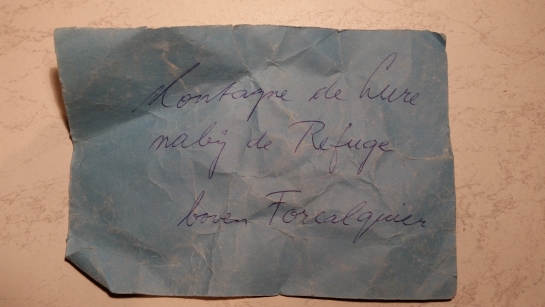 Montagne de Lure
nabij de Refuge
boven Forcalquier